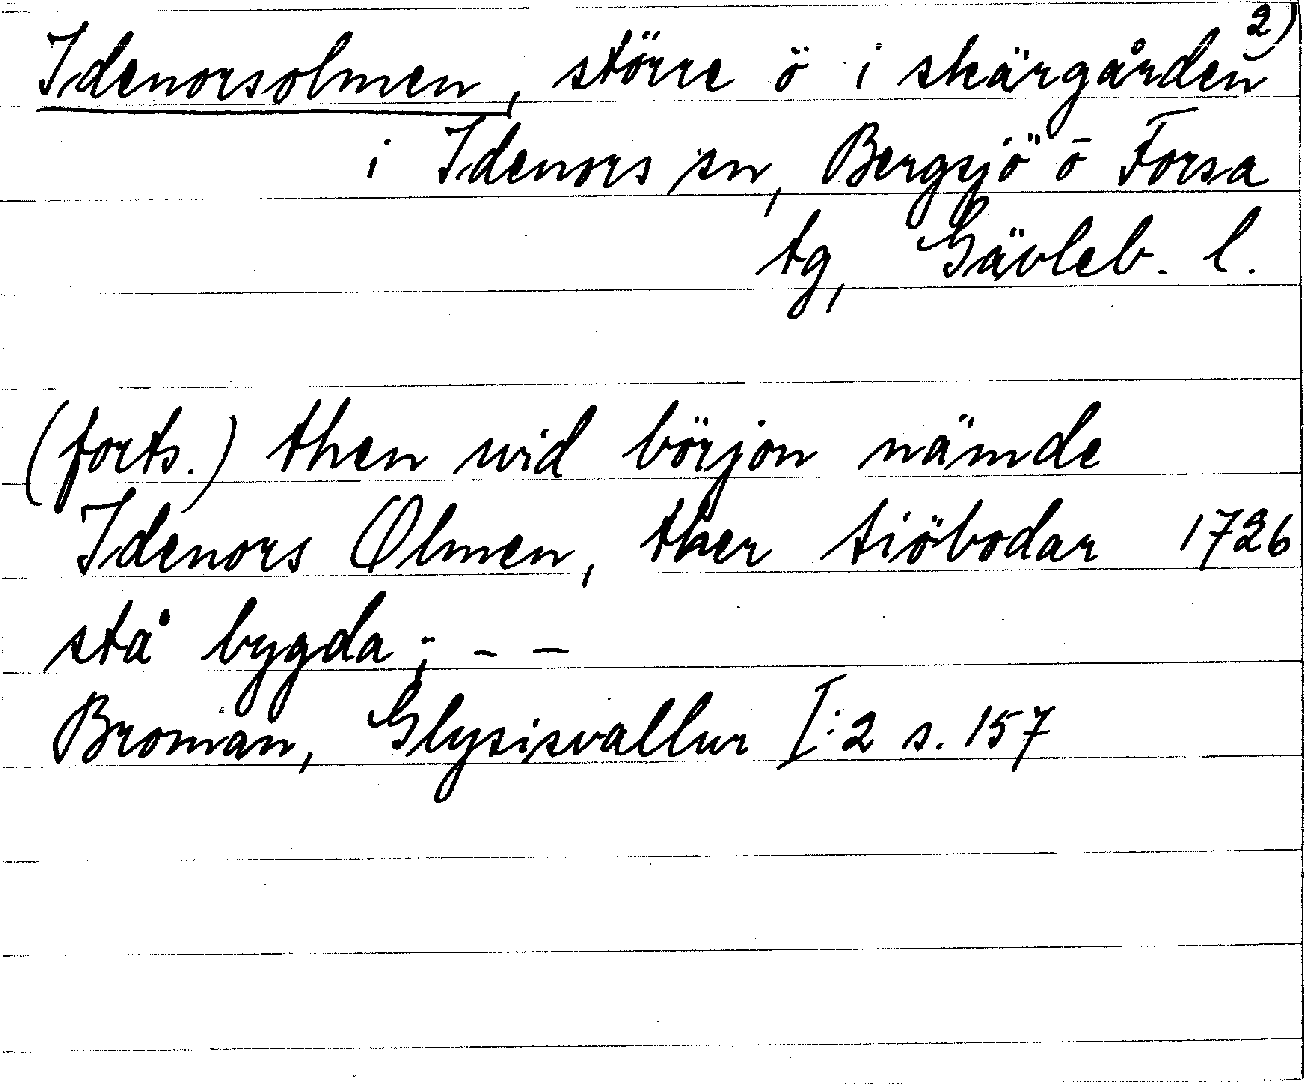 2)
Idenorsolmen, större ö i skärgården
i Idenors sn, Bergsjö o Forsa
tg, Gävleb. l.
(forts.) then wid börjon nämde
Idenors Olmen, ther tiöbodar 1726
stå bygda; - -
Broman, Glysisvallur I:2 s. 157